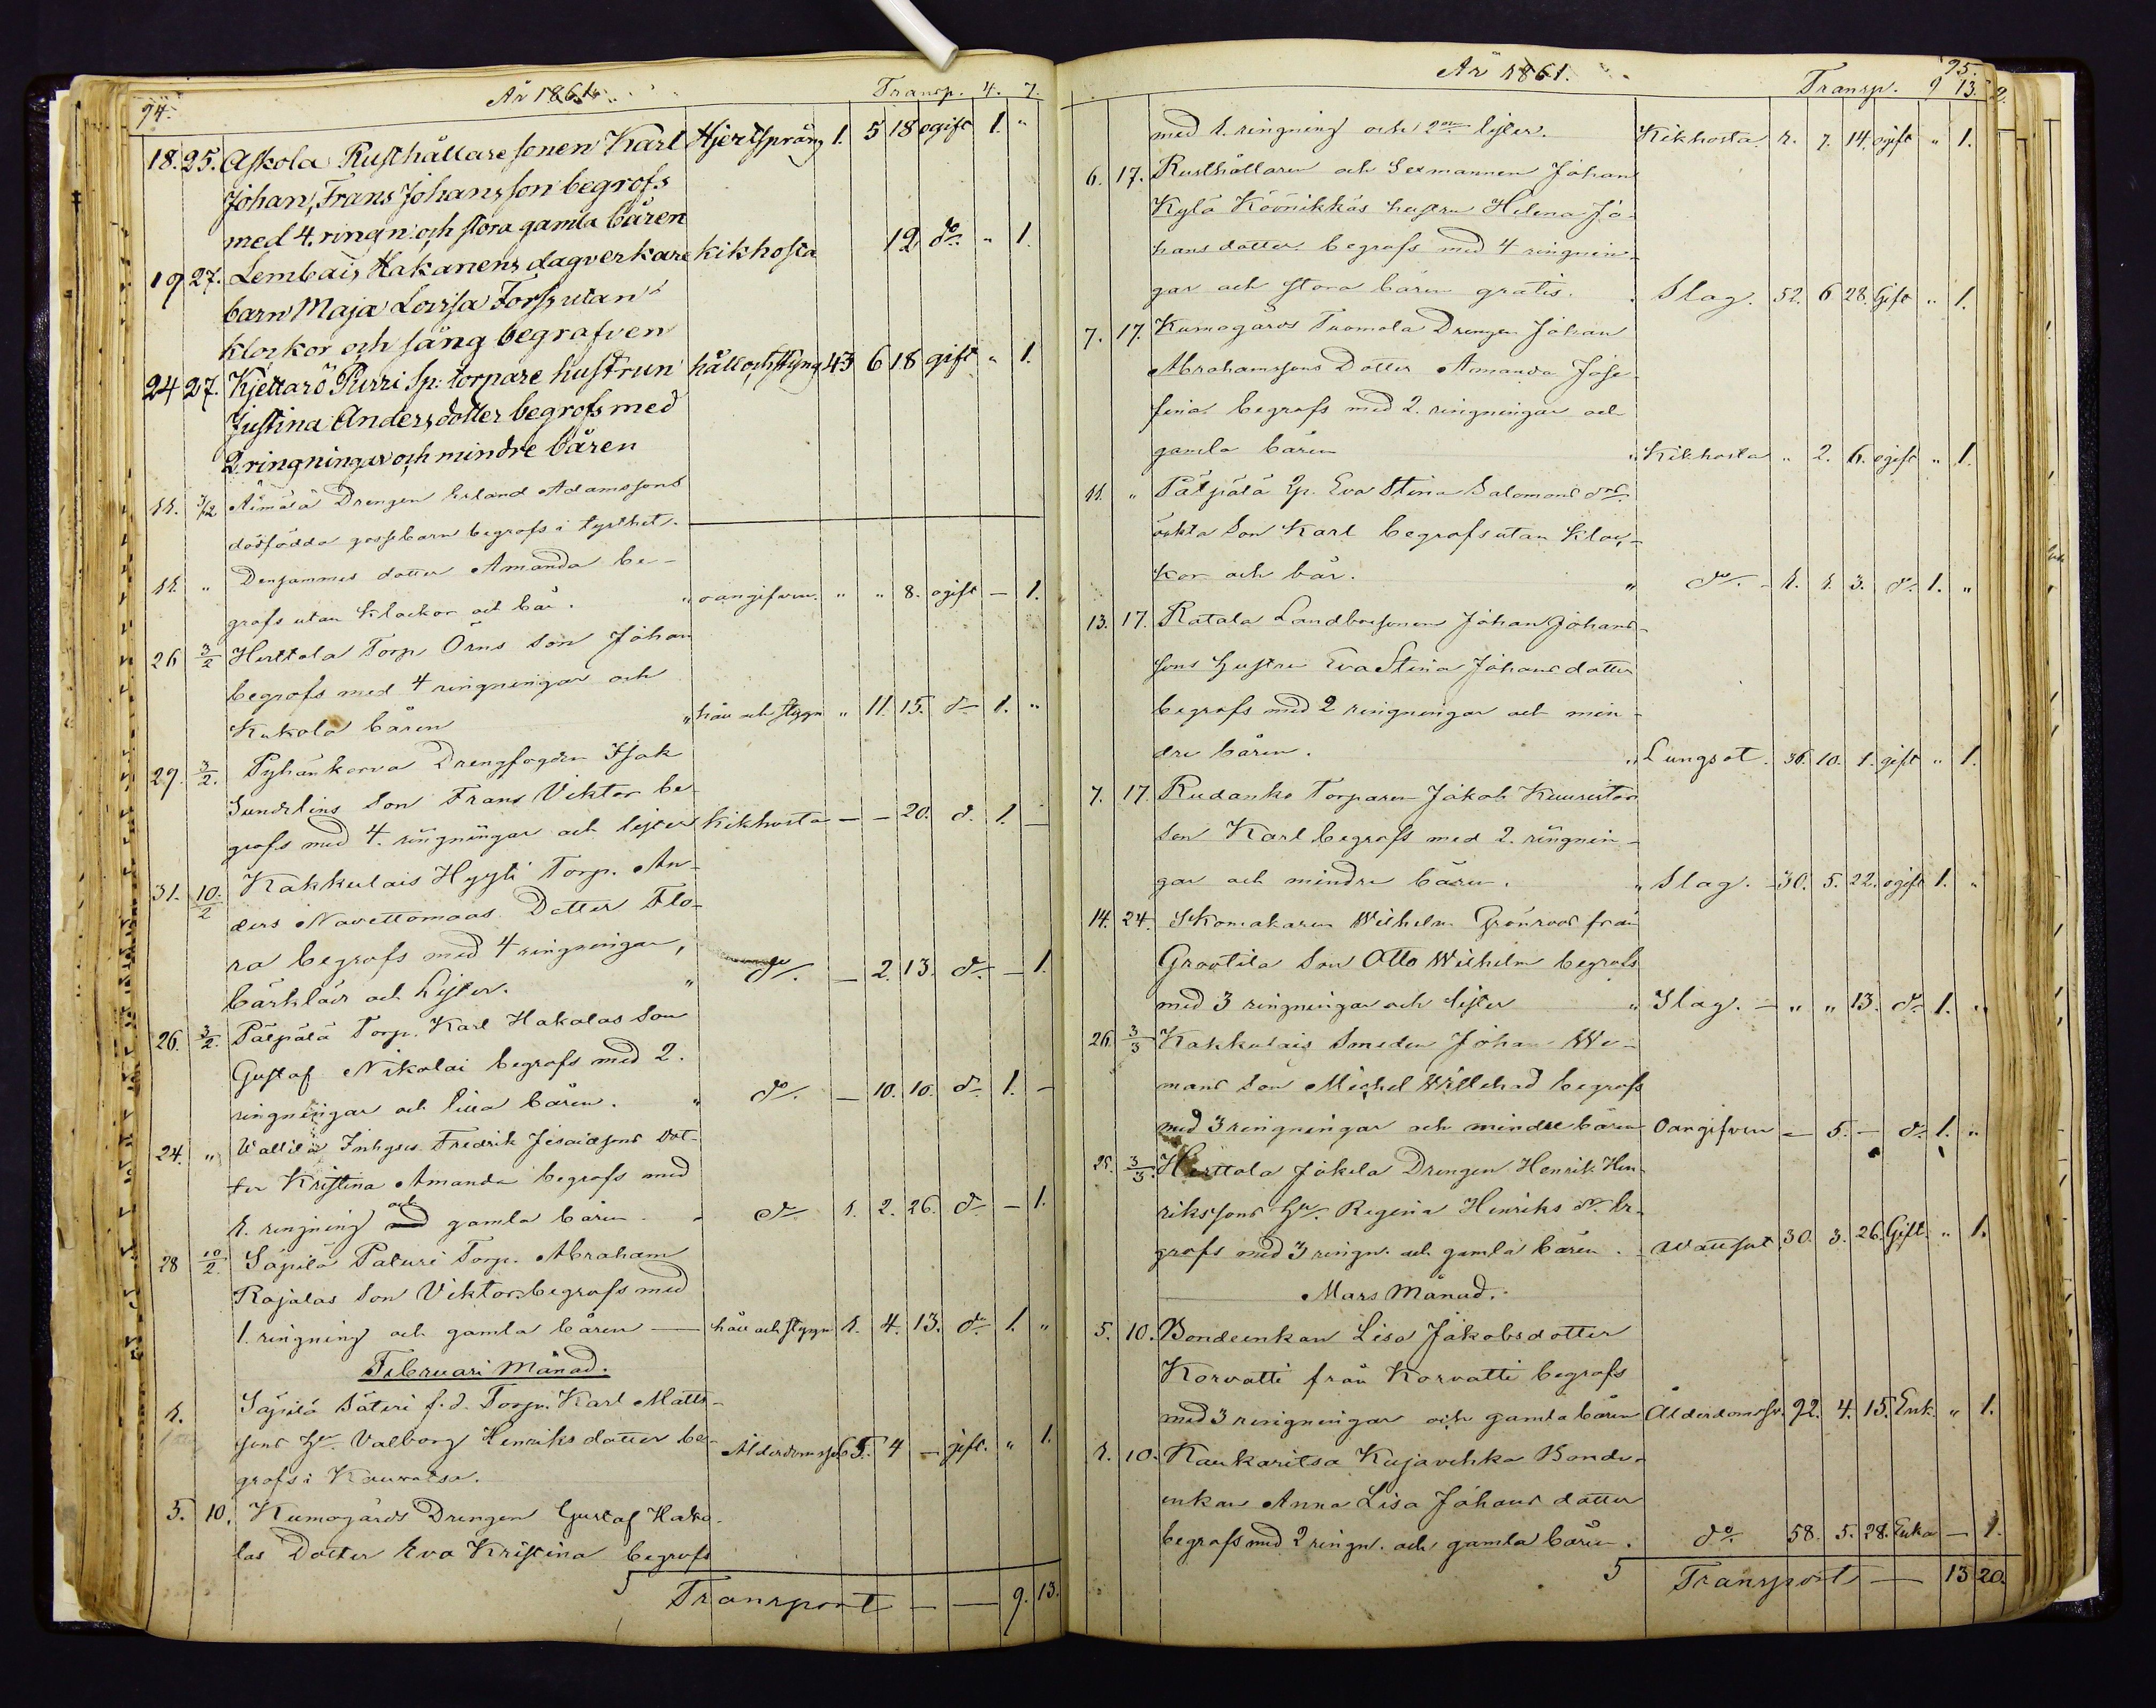 94. År 1861. Transp. 4. 7.
18. 25. Askola Rusthållare sonen Karl Hjertsprång 1. 5 18 ogift 1. "
Johan, Frans Johansson begrofs
med 4. ringn: och stora gamla båren
19 27. Lembais Hakanens dagverkare kikhosta 12 do " 1.
barn Maja Lovisa Forss utan
klockor och sång begrafven
24 27. Kjettarö Purri Sp: torpare hustrun håll och styng 43 6 18 gift " 1.
Justina Andersdotter begrofs med
2 ringningar och mindre båren
11. 3/2 Äimälä Drengen Erland Adamssons
dödfödda gossebarn begrofs i tysthet.
11. " Densammes dotter Amanda be-
grofs utan klockor och bår. " oangifven. " " 8. ogift — 1.
26 3/2 Herttola Torp. Örns Son Johan
begrofs med 4 ringningar och
Kukola båren " håll och stygn " 11. 15. do 1. "
29. 3/2. Pyhänkorva Drengfogden Isak
Sundelins Son Frans Viktor be-
grofs med 4. ringningar och lister Kikhosta — — 20. d. 1. —
31. 10/2 Kakkulais Hyyti Torp. An-
ders Navettomaas Dotter Flo-
ra begrofs med 4 ringningar,
bårkläde och Lister. " do — 2. 13. do — 1.
26. 3/2. Pälpälä Torp. Karl Hakalas Son
Gustaf Nikolai begrofs med 2.
ringningar och lilla båren. " do. — 10. 10. do 1. —
24. " Wallila Inhyses Fredrik Jesaiassons Dot-
ter Kristina Amanda begrofs med
1. ringning och gamla båren. " do 1. 2. 26. do — 1.
28 10/2. Säpilä Paturi Torp. Abraham
Rajalas Son Viktor begrofs med
1. ringning och gamla båren — håll och stygn 1. 4. 13. do 1. "
Februari Månad.
1. Säpilä Säteri f.d. Torp. Karl Matts-
sons Hu. Valborg Henriksdotter be-
grofs i Kauvatsa. Ålderdomssv. 65. 4 — gift. " 1.
5. 10. Kumogårds Drengen Gustaf Hako-
las Dotter Eva Kristina begrofs
Transport — — 9. 13.
År 1861. 95.
Transp. 9 13.
med 1. ringning och lister. Kikhosta. 1. 7. 14. ogift " 1.
6. 17. Rusthållaren och Sexmannen Johan
Kylä Köönikkäs hustru Helena Jo-
hansdotter begrofs med 4 ringnin-
gar och stora båren gratis. Slag. 52. 6 28. Gift " 1.
7. 17. Kumogårds Tuomola Drengen Johan
Abrahamssons Dotter Amanda Jose-
fina begrofs med 2. ringningar och
gamla båren " Kikhosta " 2. 6. ogift " 1.
11. " Pälpälä Eva Stina Salomons dr
oäkta Son Karl begrofs utan kloc-
kor och bår. " do. 1. 1. 3. do. 1. "
13. 17. Ratala Landbosonen Johan Johans-
sons Hustru Eva Stina Johansdotter
begrofs med 2 ringningar och min-
dre båren. " Lungsot. 36. 10. 1. gift " 1.
7. 17. Rudanko Torparen Jakob Kuuriston
Son Karl begrofs med 2. ringnin-
gar och mindre båren. " Slag. 30. 5. 22. ogift 1. "
14. 24. Skomakaren Wilhelm Grönroos från
Grootila Son Otto Wilhelm begrofs
med 3 ringningar och lister " Slag. — " " 13. do 1. "
26. 3/3 Kakkulais Smeden Johan We-
mans Son Michel Willehad begrofs
med 3 ringningar och mindre båren Oangifven — 5. — do 1. "
25. 3/3. Herttola Jokela Drengen Henrik Hen-
rikssons Hu. Regina Henriks dr. be-
grofs med 3 ringn. och gamla båren. Wattsot 30. 3. 26. Gift " 1.
Mars Månad.
5. 10. Bondeenkan Lisa Jakobsdotter
Korvatti från Korvatti begrofs
med 3 ringningar och gamla båren Ålderdomssv. 92. 4. 15. Enk. " 1.
1. 10. Raukaritsa Kujavehka Bonde-
enkan Anna Lisa Johans dotter
begrofs med 2 ringn. och gamla båren. do 58. 5. 28. Enka — 1.
Transport — 13 20.